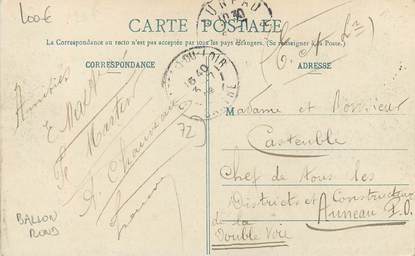 100€
CARTE POSTALE
La Correspondance au recto n'est pas acceptée par tous les pays étrangers. (Se renseigner à la Poste.)
CORRESPONDANCE
ADRESSE
Amitiés
Martin
A. Chauveau
72
BALLON
ROND
Madame et Monsieur
Chef de tous les
Districts et Constructeur
de la
Double Voie
Auneau